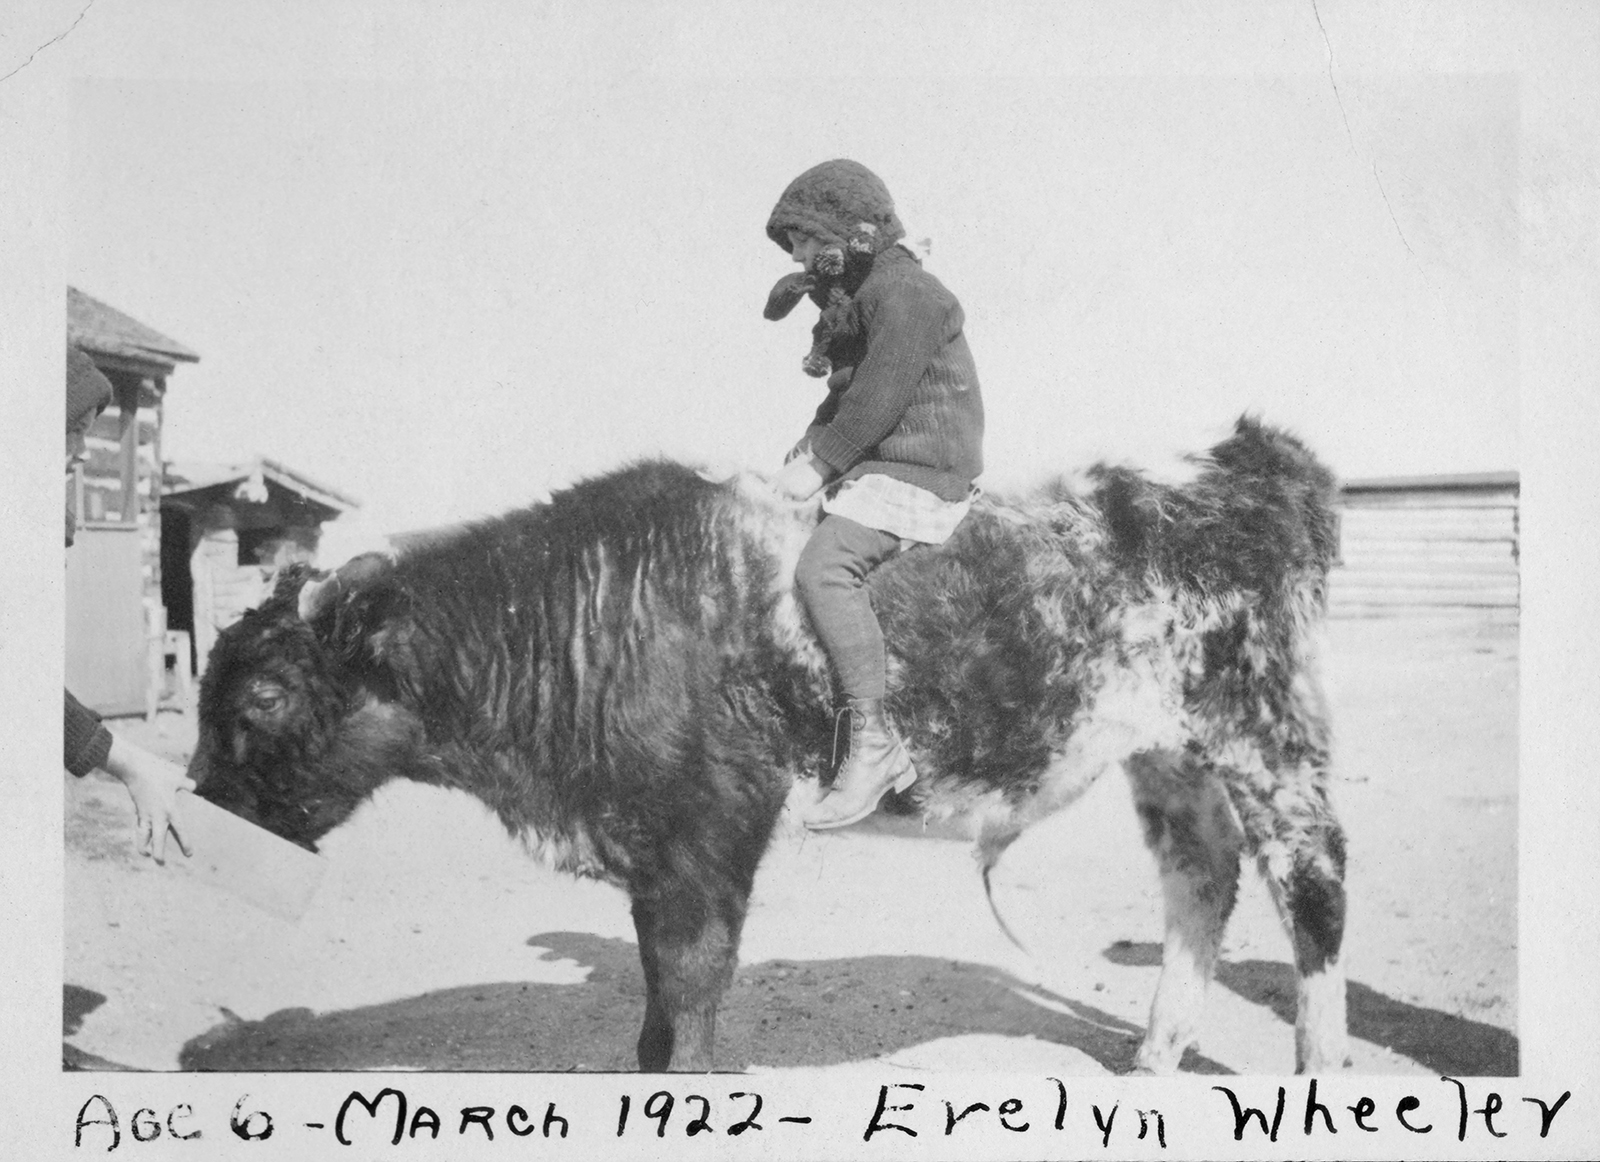 Age 6 - March 1922 - Evelyn Wheeler